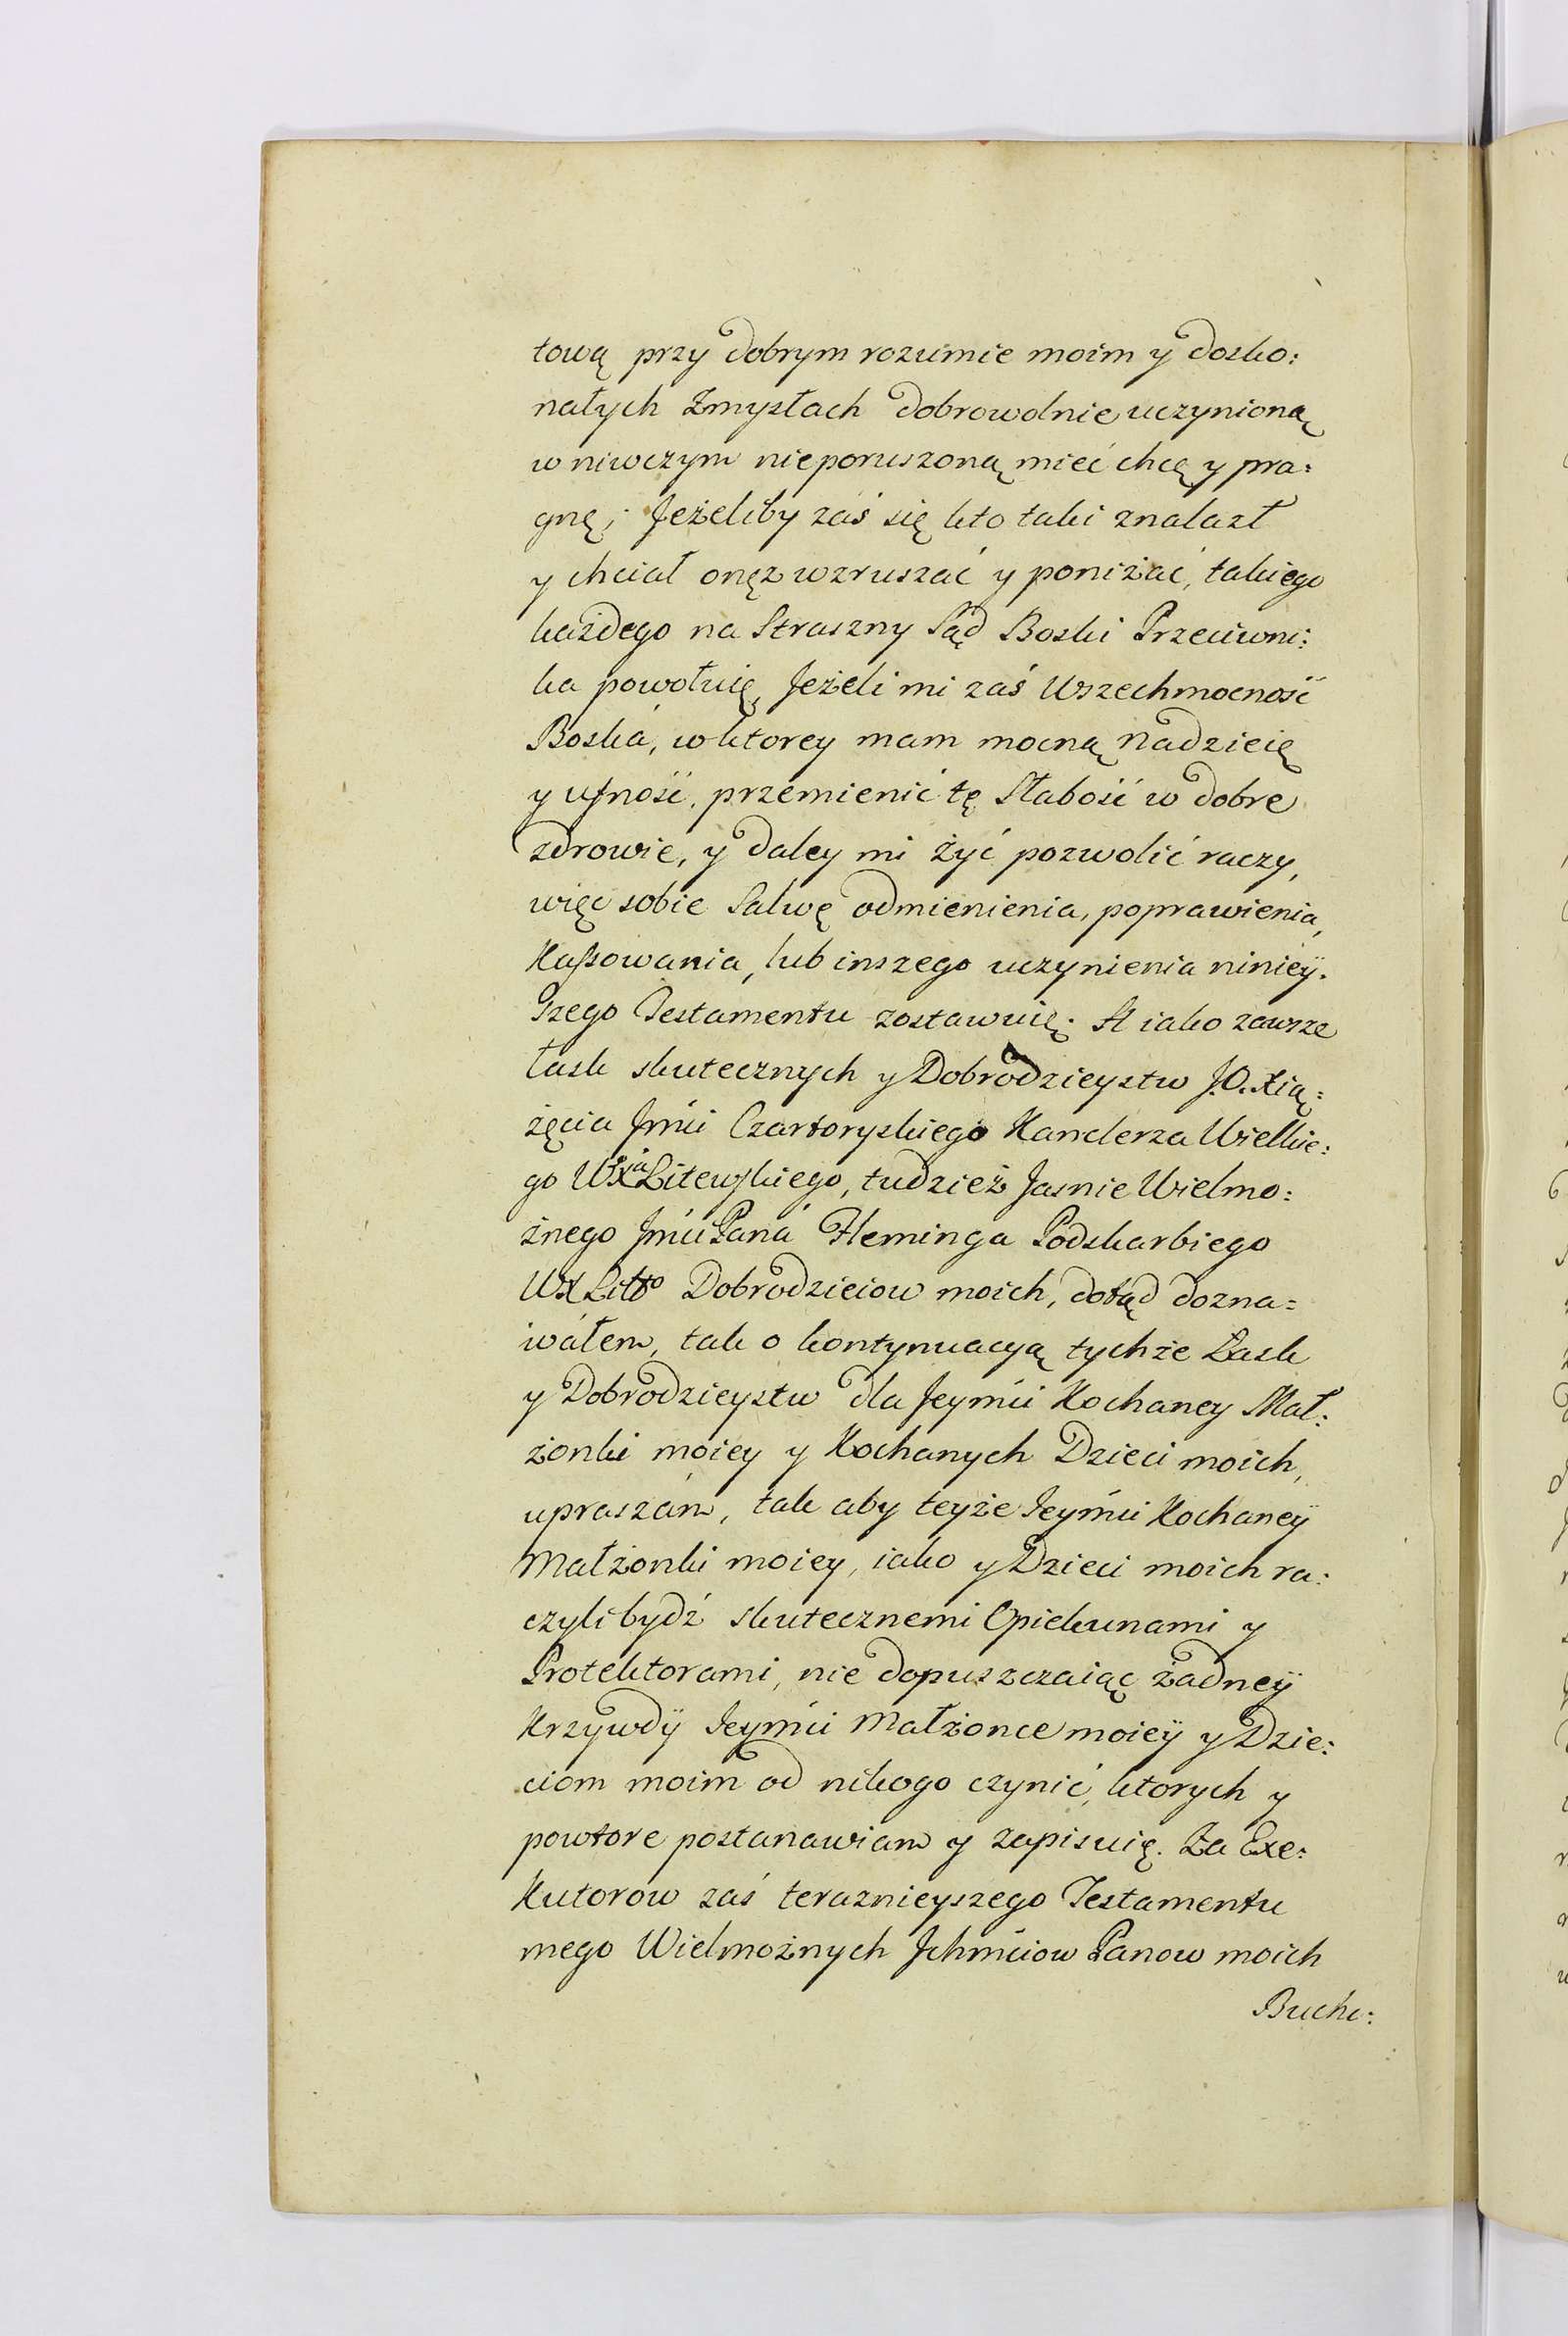 tową przy dobrym rozumie moim y dosko:
nałych Zmysłach dobrowolnie uczynioną
w niwczym nieporuszoną mieć chcę y pra:
gnę; Jeżeliby zaś się kto taki znalazł
y chciał onęz wzruszać y poniżać, takiego
każdego na Straszny Sąd Boski Przeciwni:
ka powołuię, Jeżeli mi zaś Wszechmocność
Boska, w ktorey mam mocną nadzieię
y ufność, przemienić tę Słabość w dobre
zdrowie, y daley mi żyć pozwolić raczy,
więc sobie Salwę odmienienia, poprawienia,
Kassowania, lub inszego uczynienia niniey:
szego Testamentu zostawuię. A iako zawsze
łask skutecznych y Dobrodzieystw J.O. Xią:
żęcia Jmći Czartoryskiego Kanclerza Wielkie:
go WXa Litewskiego, tudzież Jasnie Wielmo:
żnego Jmći Pana Fleminga Podskarbiego
WX Litto Dobrodzieiow moich, dotąd dozna=
wałem, tak o kontynuacyą tychże Łask
y Dobrodzieystw dla Jeymći Kochaney Mał:
żonki moiey y Kochanych Dzieci moich,
upraszam, tak aby teyże Jeymći Kochaney
Małżonki moiey, iako y Dzieci moich ra:
czyli bydź skutecznemi Opiekunami y
Protektorami, nie dopuszczaiąc żadney
Krzywdy Jeymći Małżonce moiey y Dzie:
ciom moim od nikogo czynić, ktorych y
powtore postanawiam y zapisuię. Za Exe:
Kutorow zaś teraznieyszego Testamentu
mego Wielmożnych Jchmćiow Panow moich
Buch: